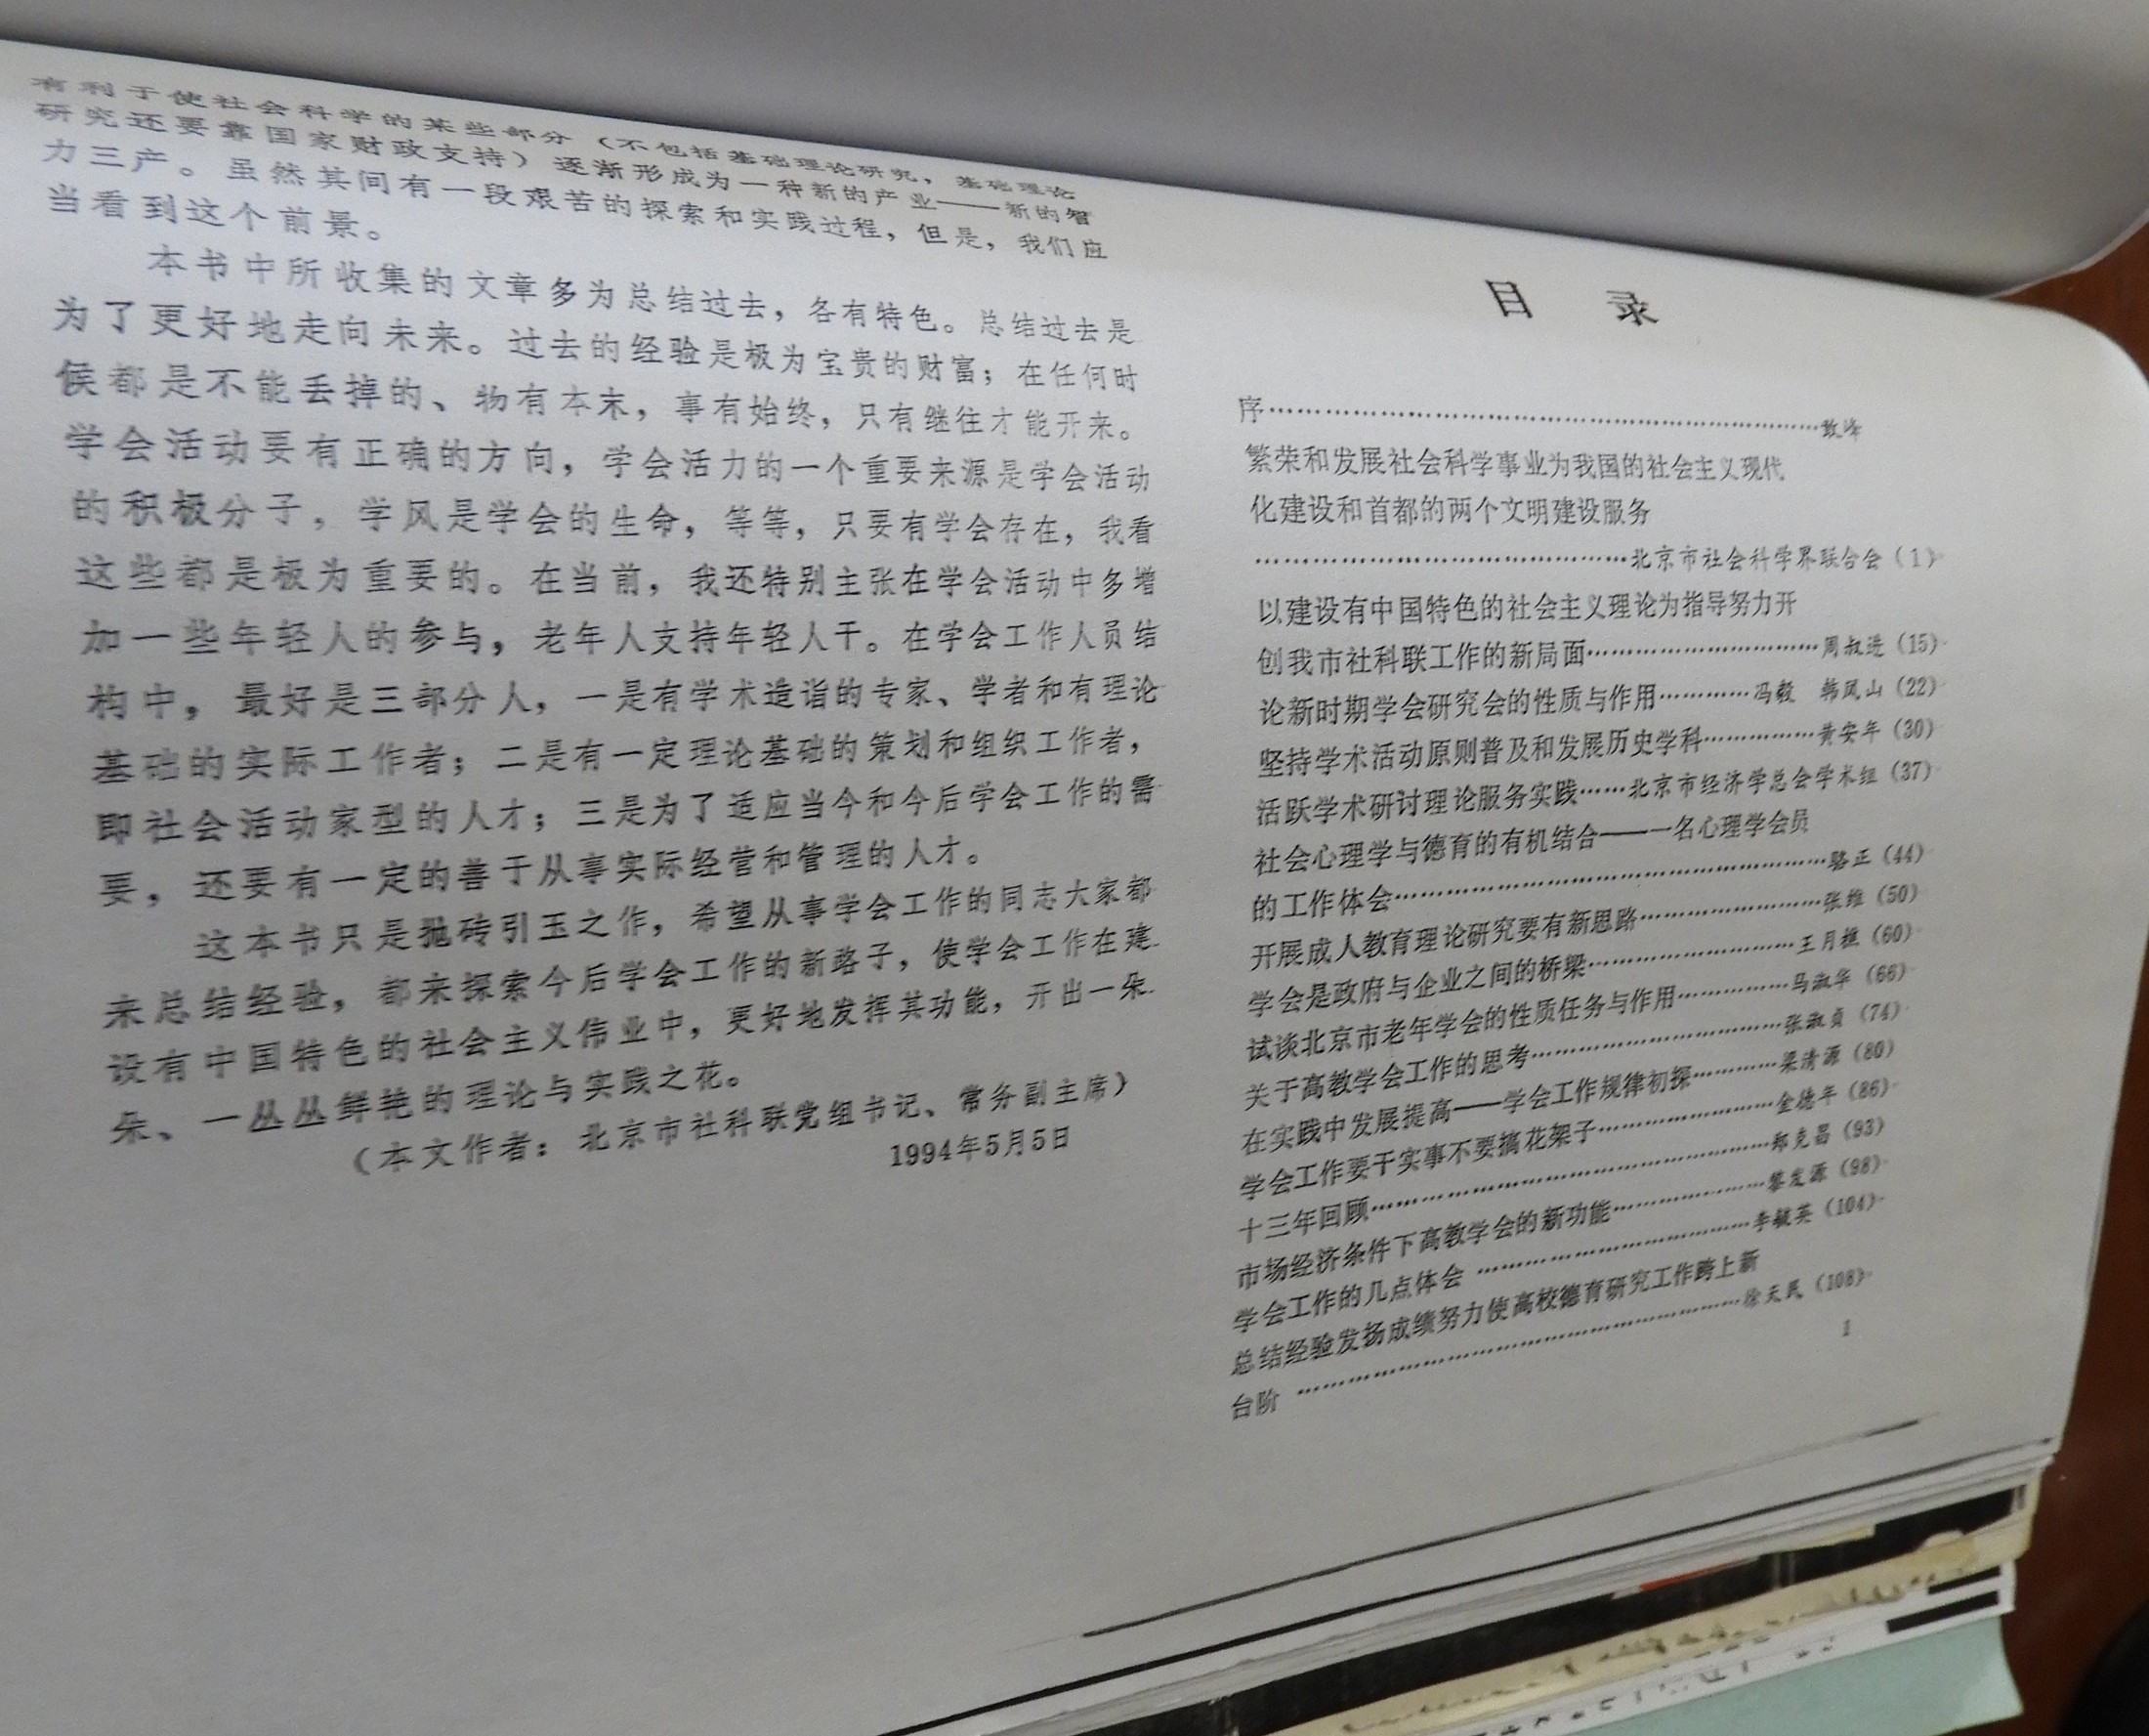 有利于使社会科学的某些部分（不包括基础理论研究，基础理论
研究还要靠国家财政支持）逐渐形成为一种新的产业——新的智
力三产。虽然其间有一段艰苦的探索和实践过程，但是，我们应
当看到这个前景。
本书中所收集的文章多为总结过去，各有特色。总结过去是
为了更好地走向未来。过去的经验是极为宝贵的财富；在任何时
候都是不能丢掉的、物有本末，事有始终，只有继往才能开来。
学会活动要有正确的方向，学会活力的一个重要来源是学会活动
的积极分子，学风是学会的生命，等等，只要有学会存在，我看
这些都是极为重要的。在当前，我还特别主张在学会活动中多增
加一些年轻人的参与，老年人支持年轻人干。在学会工作人员结
构中，最好是三部分人，一是有学术造诣的专家、学者和有理论
基础的实际工作者；二是有一定理论基础的策划和组织工作者，
即社会活动家型的人才；三是为了适应当今和今后学会工作的需
要，还要有一定的善于从事实际经营和管理的人才。
这本书只是抛砖引玉之作，希望从事学会工作的同志大家都
来总结经验，都来探索今后学会工作的新路子，使学会工作在建
设有中国特色的社会主义伟业中，更好地发挥其功能，开出一朵
朵、一丛丛鲜艳的理论与实践之花。
（本文作者：北京市社科联党组书记、常务副主席）
1994年5月5日
目 录
序…………………………………………………峰
繁荣和发展社会科学事业为我国的社会主义现代
化建设和首都的两个文明建设服务
……………………………………北京市社会科学界联合会（1）
以建设有中国特色的社会主义理论为指导努力开
创我市社科联工作的新局面………………………周叔进（15）
论新时期学会研究会的性质与作用…………冯毅 韩凤山（22）
坚持学术活动原则普及和发展历史学科……………黄安年（30）
活跃学术研讨理论服务实践……北京市经济学总会学术组（37）
社会心理学与德育的有机结合——一名心理学会员
的工作体会…………………………………………骆正（44）
开展成人教育理论研究要有新思路…………………张维（50）
学会是政府与企业之间的桥梁……………………王月（60）
试谈北京市老年学会的性质任务与作用……………马淑华（66）
关于高教学会工作的思考…………………………张淑贞（74）
在实践中发展提高——学会工作规律初探…………梁清源（80）
学会工作要干实事不要搞花架子…………………金德年（86）
十三年回顾…………………………………………郑克昌（93）
市场经济条件下高教学会的新功能………………黎发源（98）
学会工作的几点体会 ……………………………李毓英（104）
总结经验发扬成绩努力使高校德育研究工作跨上新
台阶 ………………………………………………徐天民（108）
1